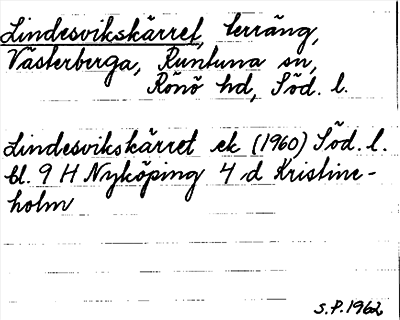 Lindesvikskärret, terräng,
Västerberga, Runtuna sn,
Rönö hd, Söd. l.
Lindesvikskärret ek (1960) Söd. l.
bl. 9 H Nyköping 4 d Kristine-
holm
S.P. 1962